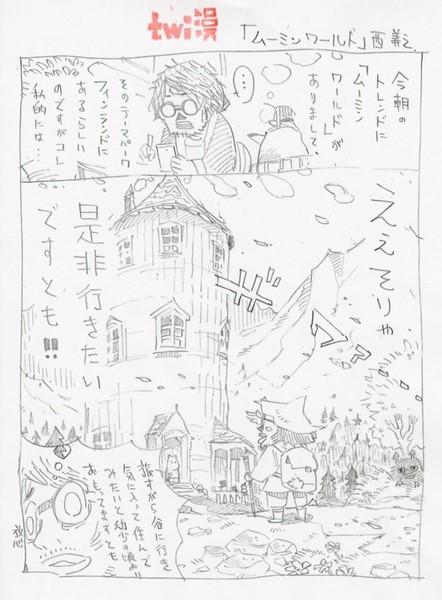 twi漫
「ムーミンワールド」西義之
今朝の
トレンドに
「ムーミン
ワールド」が
ありまして、
…
そのテーマパーク
フィンランドに
あるらしい
のですがコレ
私的には…
ええそりゃ
是非行きたい
ですとも!!
ザ
ワァ
旅すがら谷に行き
気に入って住んで
みたいと幼少の頃より
おもってますとも